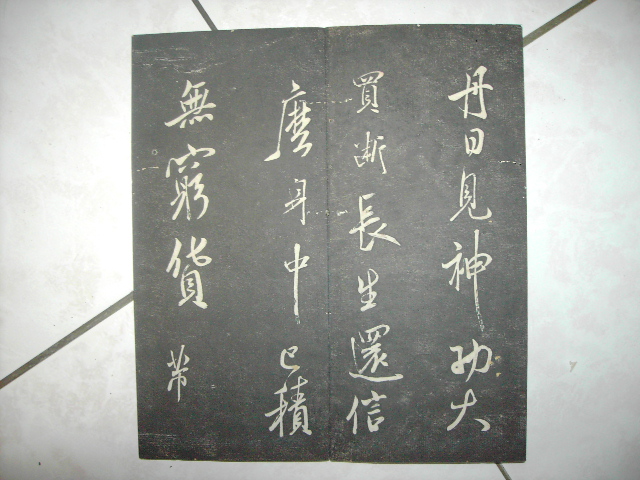 丹日見神功大
買斷長生還信
麽身中已積
無窮貨 芾